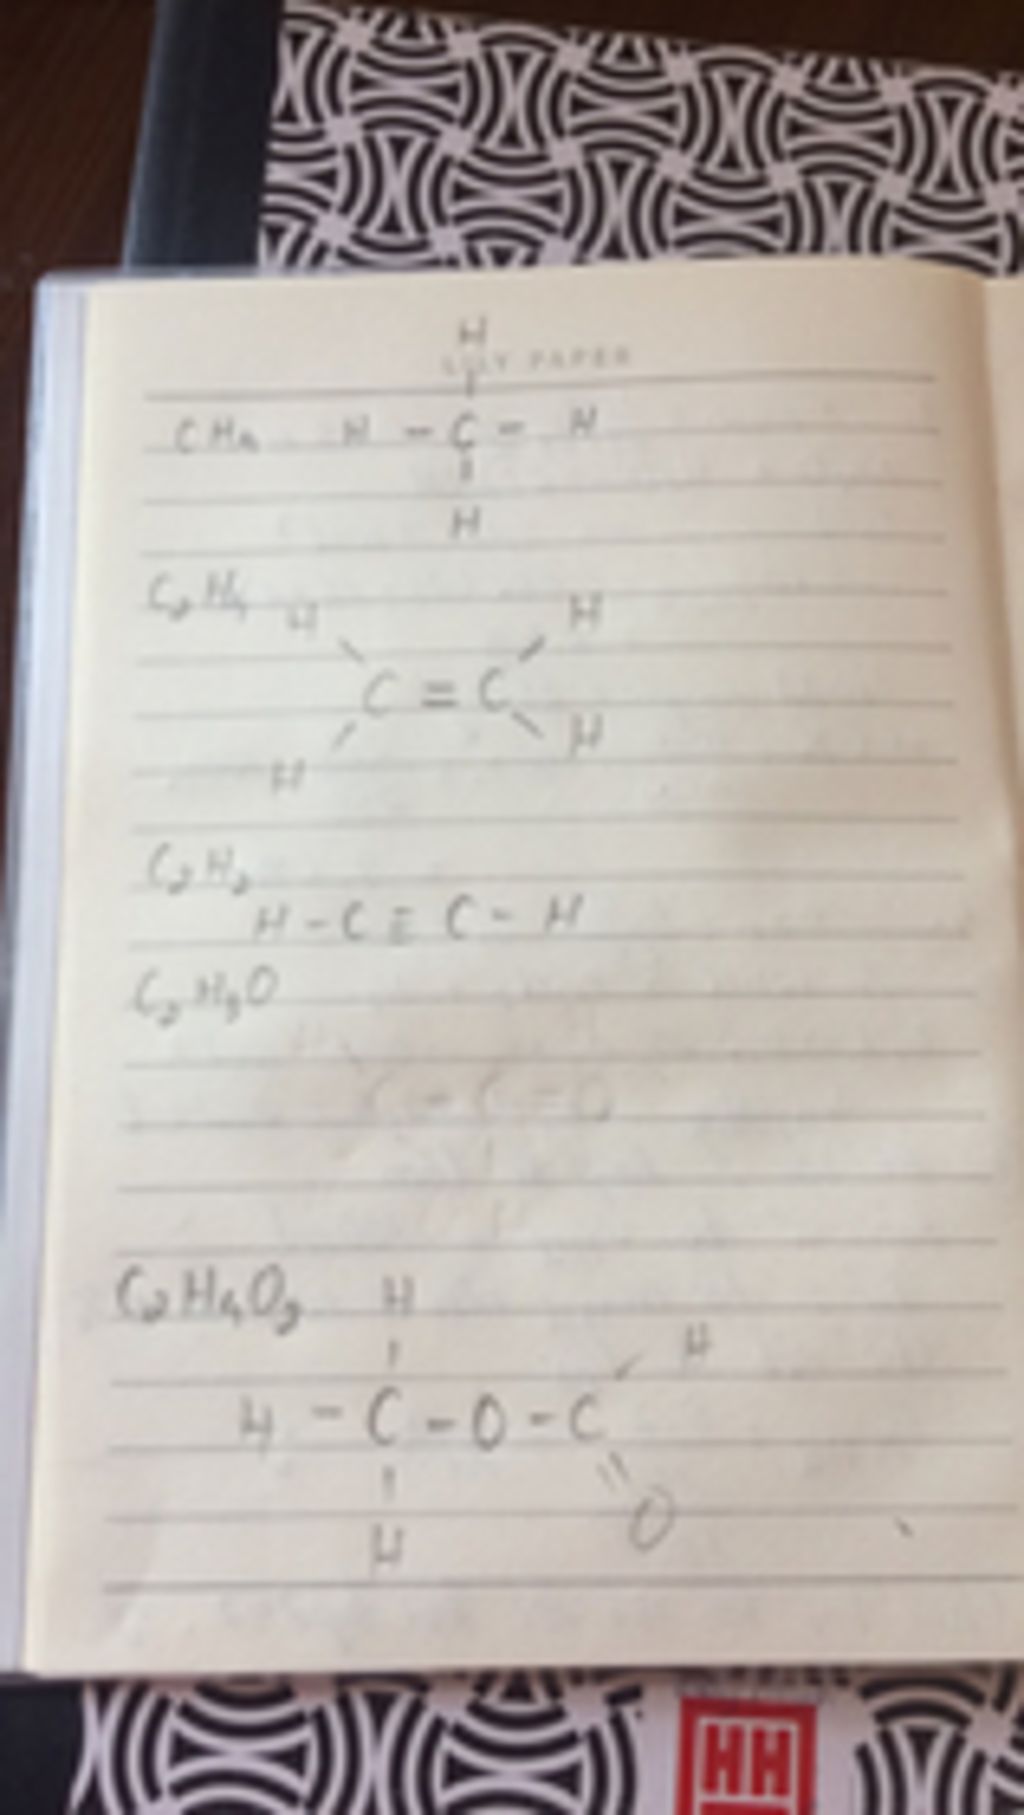 H
LILY PAPER
CH₄ H - C - H
H
C₂H₄ H H
C = C
H H
C₂H₂
H - C ≡ C - H
C - C = O
C₂H₄O₂ H
H
H - C - O - C
O
H
HH